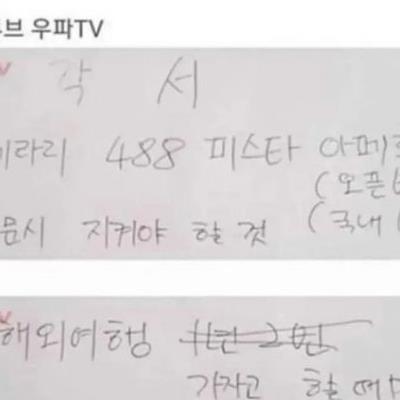 브 우파TV
각 서
라리 488 피스타 아페
(오픈
문시 지켜야 할 것 (국내
해외여행
가자고 할 때